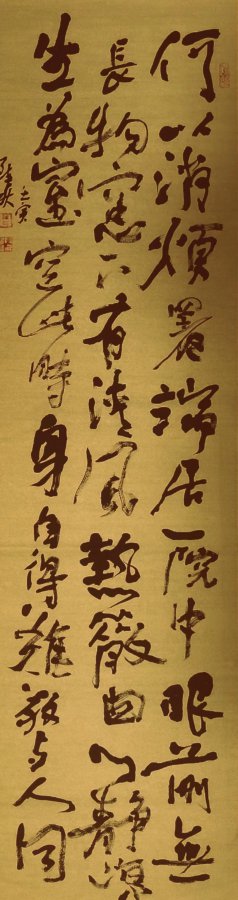 何以消煩暑端居一院中眼前無
長物窓下有清風熱散由心靜涼
生為室空此時身自得難更与人同
壬寅